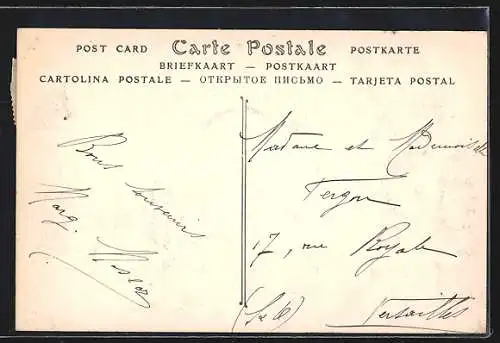 POST CARD Carte Postale POSTKARTE
BRIEFKAART — POSTKAART
CARTOLINA POSTALE — ОТКРЫТОЕ ПИСЬМО — TARJETA POSTAL
Bons
souvenirs
Marg.
Madame et Mademoiselle
17, rue Royale
(S & O)
Versailles